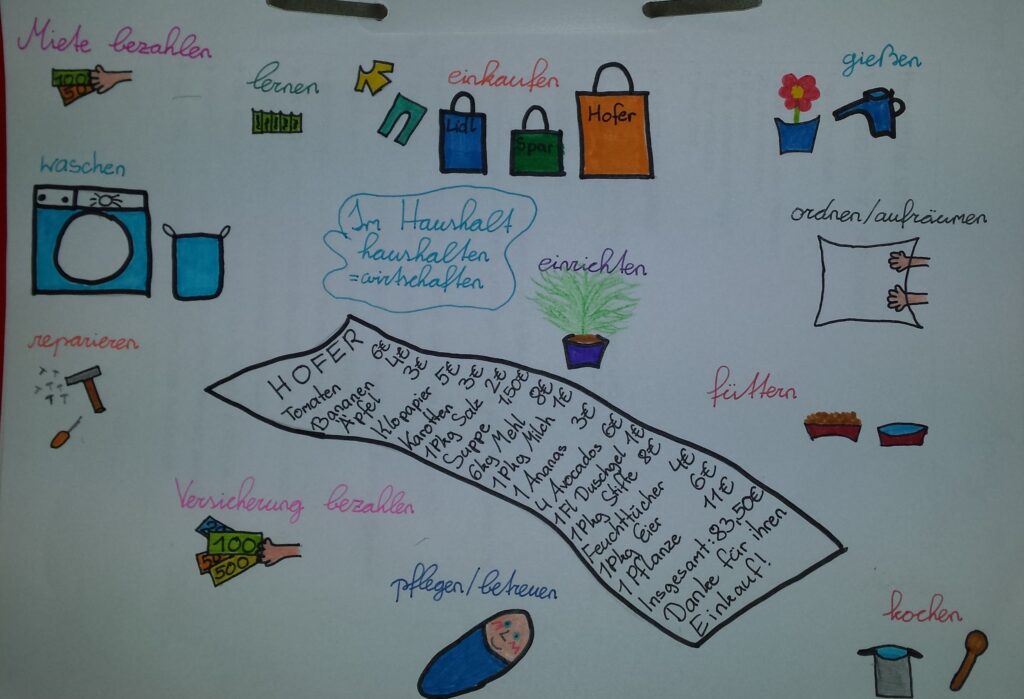 Miete bezahlen
100
50
lernen
einkaufen
Lidl
Spar
Hofer
gießen
waschen
Im Haushalt
haushalten
=wirtschaften
einrichten
ordnen/aufräumen
reparieren
HOFER
Tomaten 6€
Bananen 4€
Äpfel 3€
Klopapier 5€
Karotten 3€
1Pkg Salz 2€
Suppe 1,50€
6kg Mehl 8€
1Pkg Milch 1€
1 Ananas 3€
4 Avocados 6€
1Fl Duschgel 1€
1Pkg Stifte 8€
Feuchttücher 4€
1Pkg Eier 6€
1 Pflanze 11€
Insgesamt: 83,50€
Danke für ihren
Einkauf!
füttern
Versicherung bezahlen
100
50
500
pflegen/betreuen
kochen